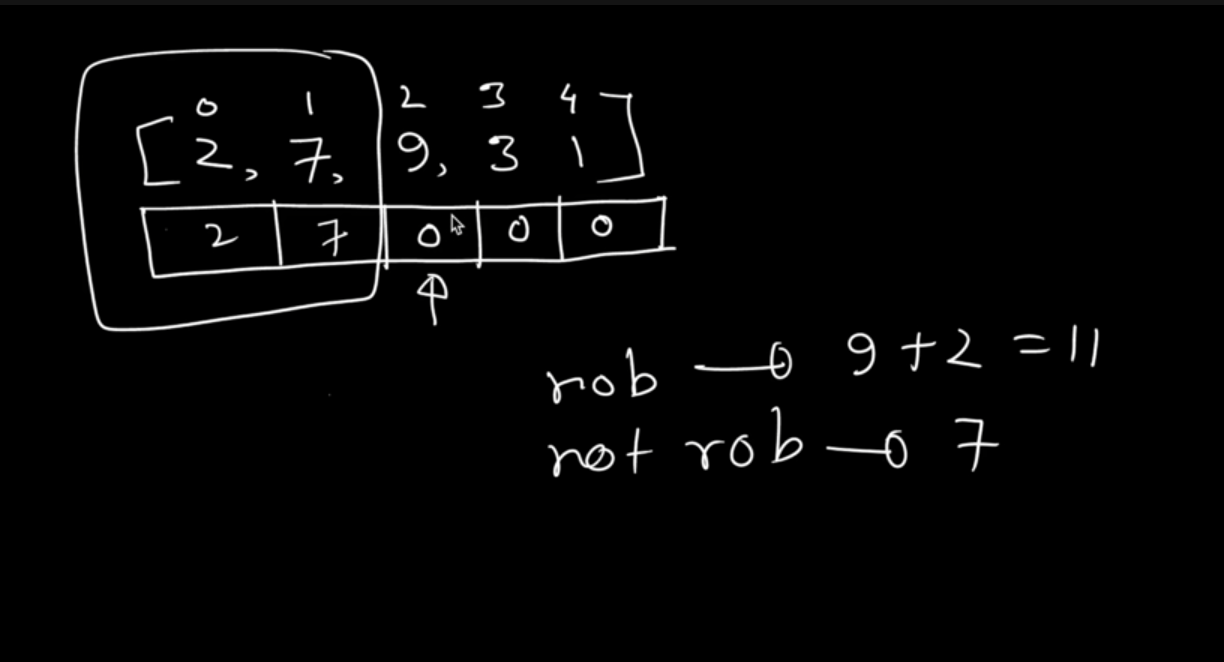 0 1 2 3 4
[2, 7, 9, 3 1]
2 7 0 0 0
rob → 9 + 2 = 11
not rob → 7